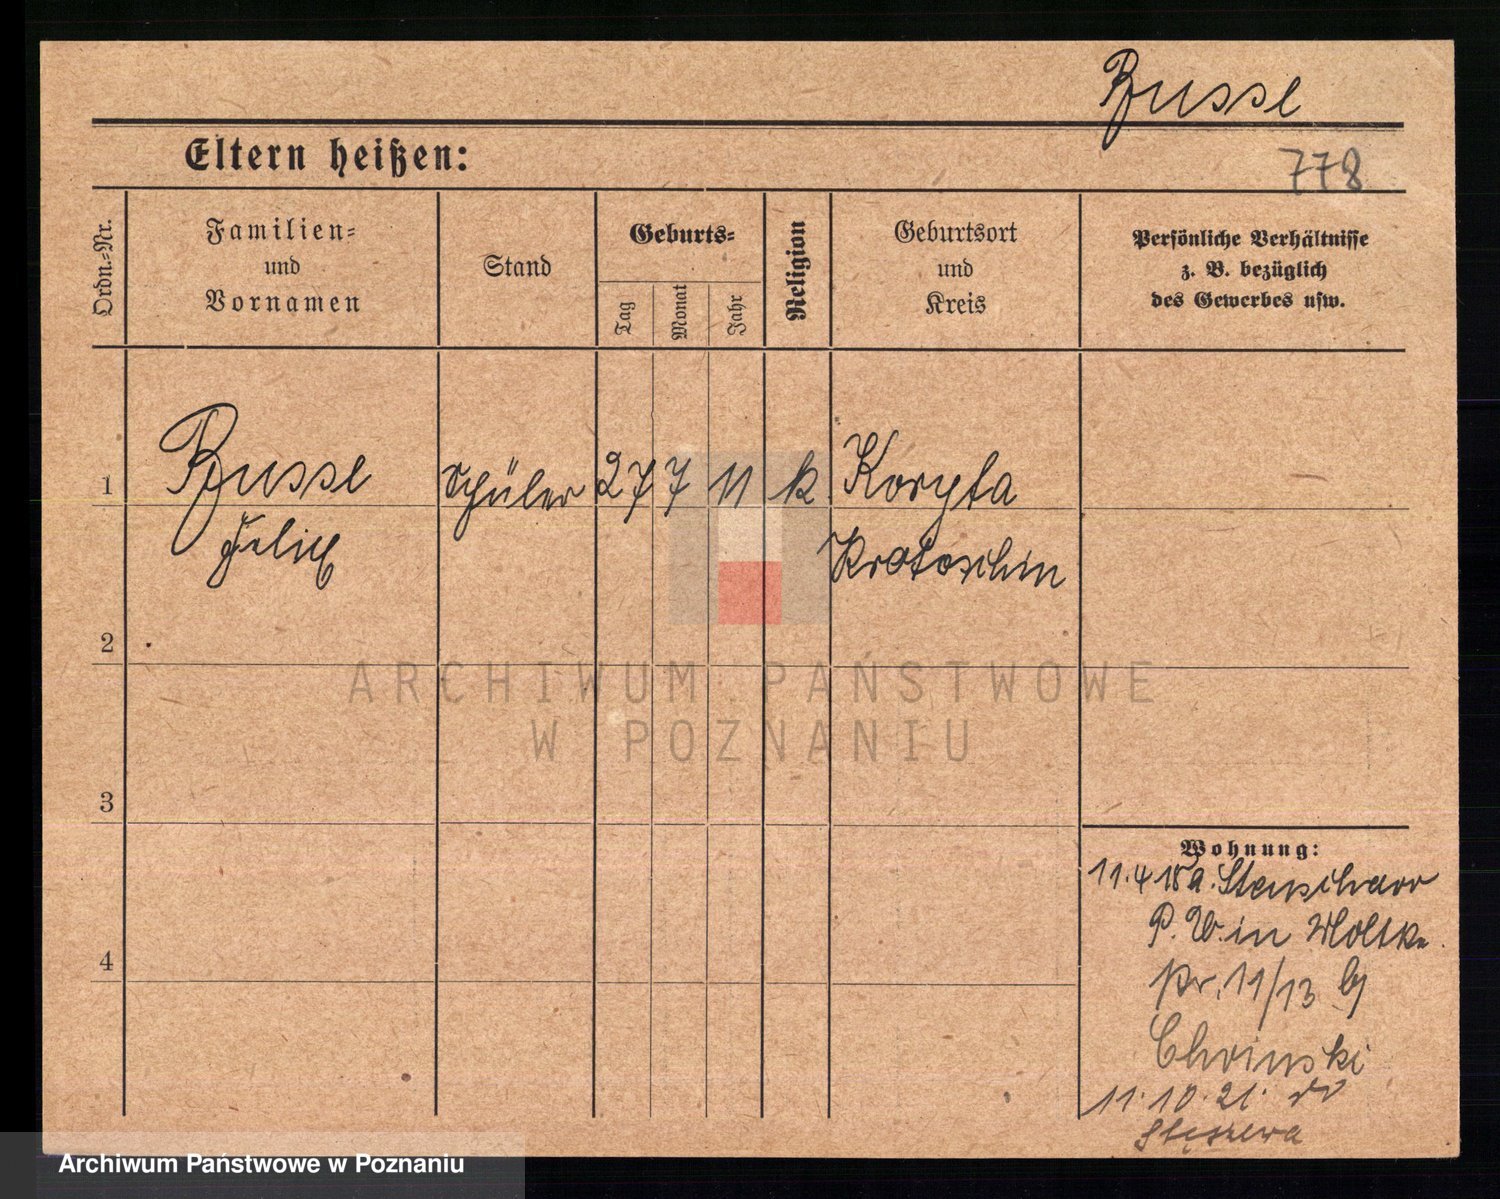 Busse
Eltern heißen:
778
Ordn.-Nr.
Familien-
und
Vornamen
Stand
Geburts-
Tag
Monat
Jahr
Religion
Geburtsort
und
Kreis
Persönliche Verhältnisse
z. B. bezüglich
des Gewerbes usw.
1 Busse Schüler 27 7 11 k Koryta
Felix Krotoschin
2
3
4
Wohnung:
11.4 18 a. Stenschewo
P. W. in Moltke
11/13 bj
Choinski
11.10.21. do
Stęszewa
ARCHIWUM PAŃSTWOWE
W POZNANIU
Archiwum Państwowe w Poznaniu